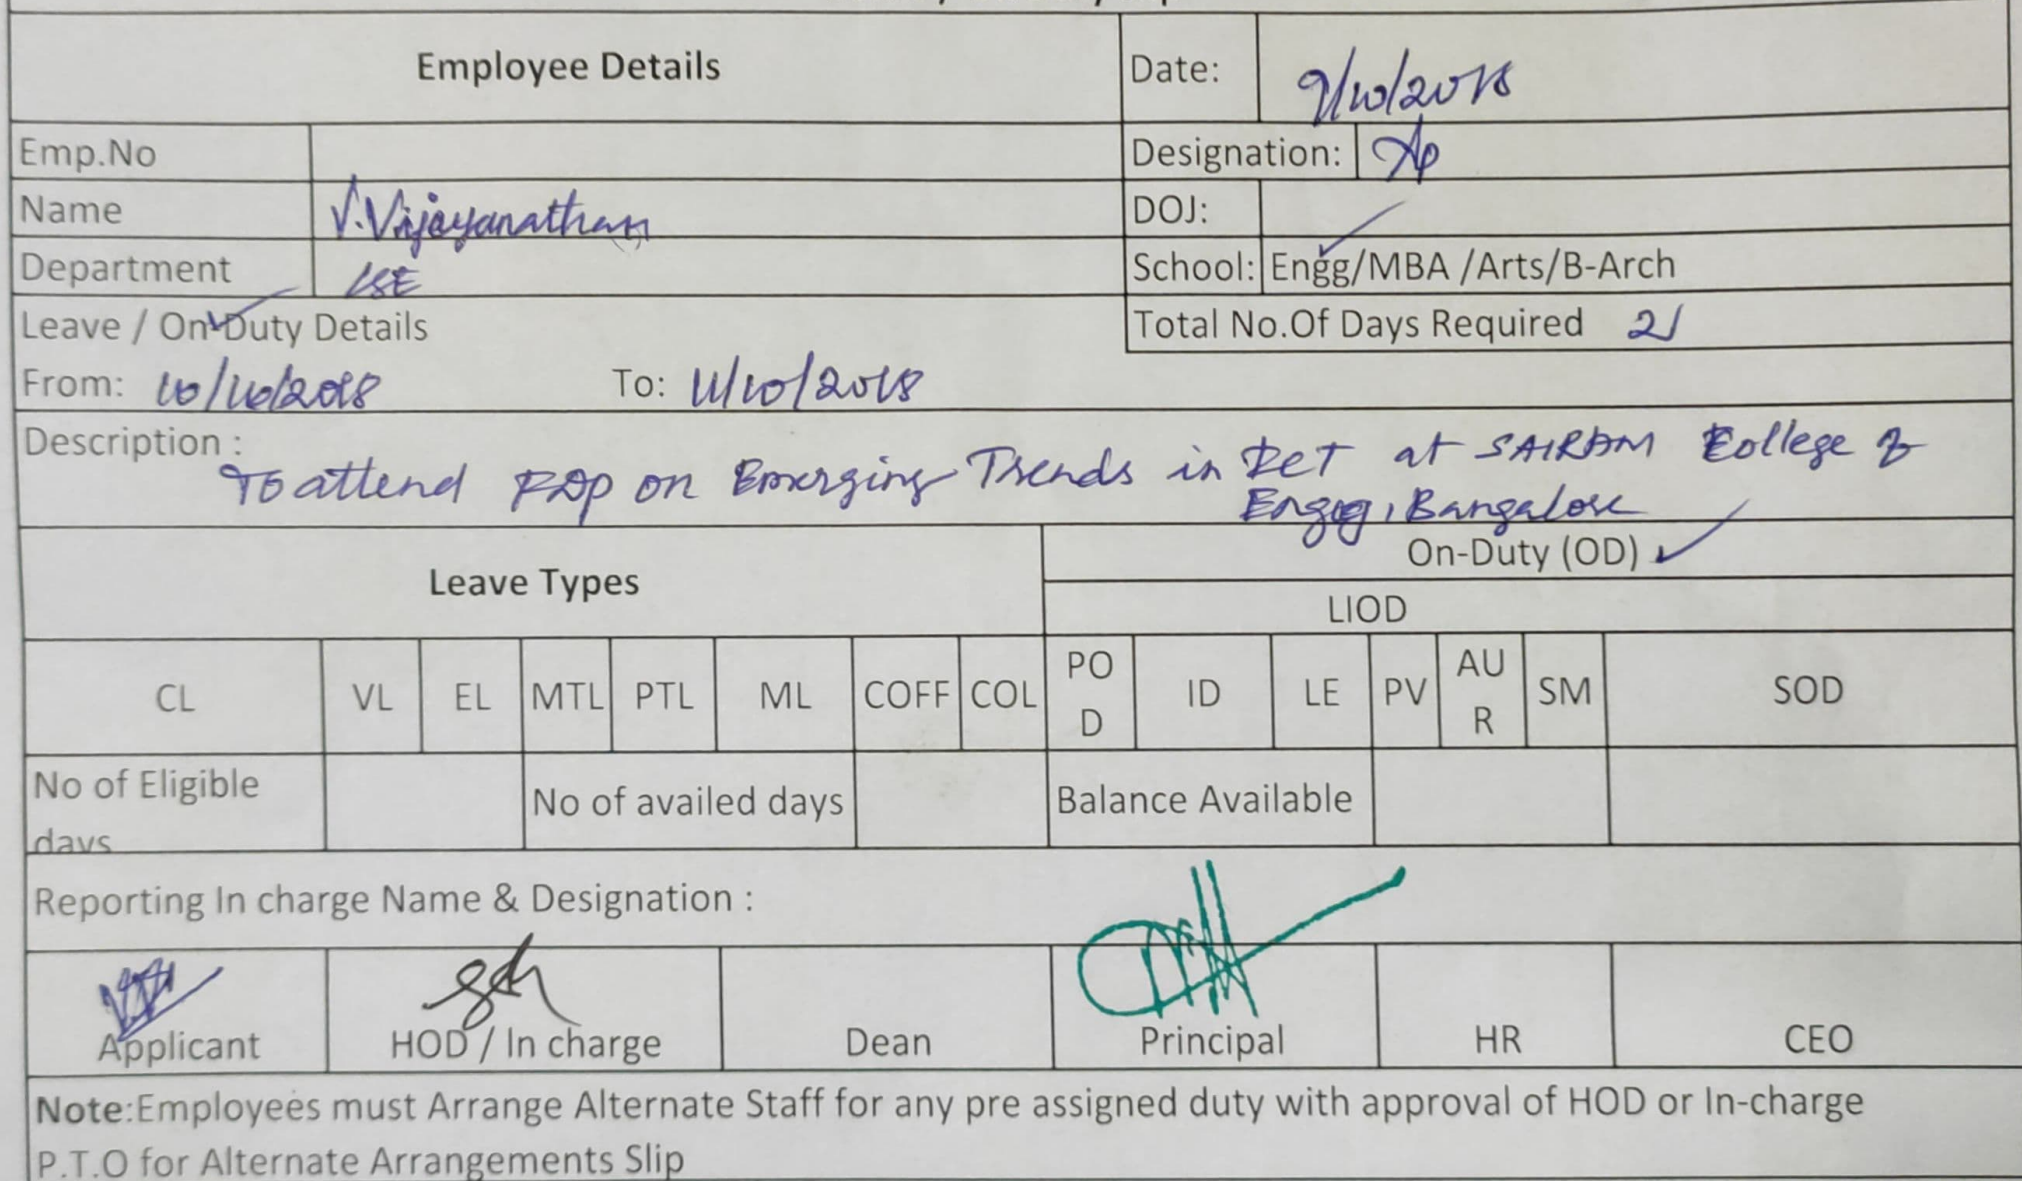 Employee Details Date: 9/10/2018
Emp.No Designation: AP
Name V.Vijayanathan DOJ:
Department CSE School: Engg/MBA /Arts/B-Arch
Leave / On-Duty Details Total No.Of Days Required 2/
From: 10/10/2018 To: 11/10/2018
Description :
To attend FDP on Emerging Trends in at SAIRAM College of
Engg, Bangalore
On-Duty (OD)
Leave Types
LIOD
CL VL EL MTL PTL ML COFF COL PO D ID LE PV AU R SM SOD
No of Eligible days No of availed days Balance Available
Reporting In charge Name & Designation :
Applicant HOD / In charge Dean Principal HR CEO
Note:Employees must Arrange Alternate Staff for any pre assigned duty with approval of HOD or In-charge
P.T.O for Alternate Arrangements Slip